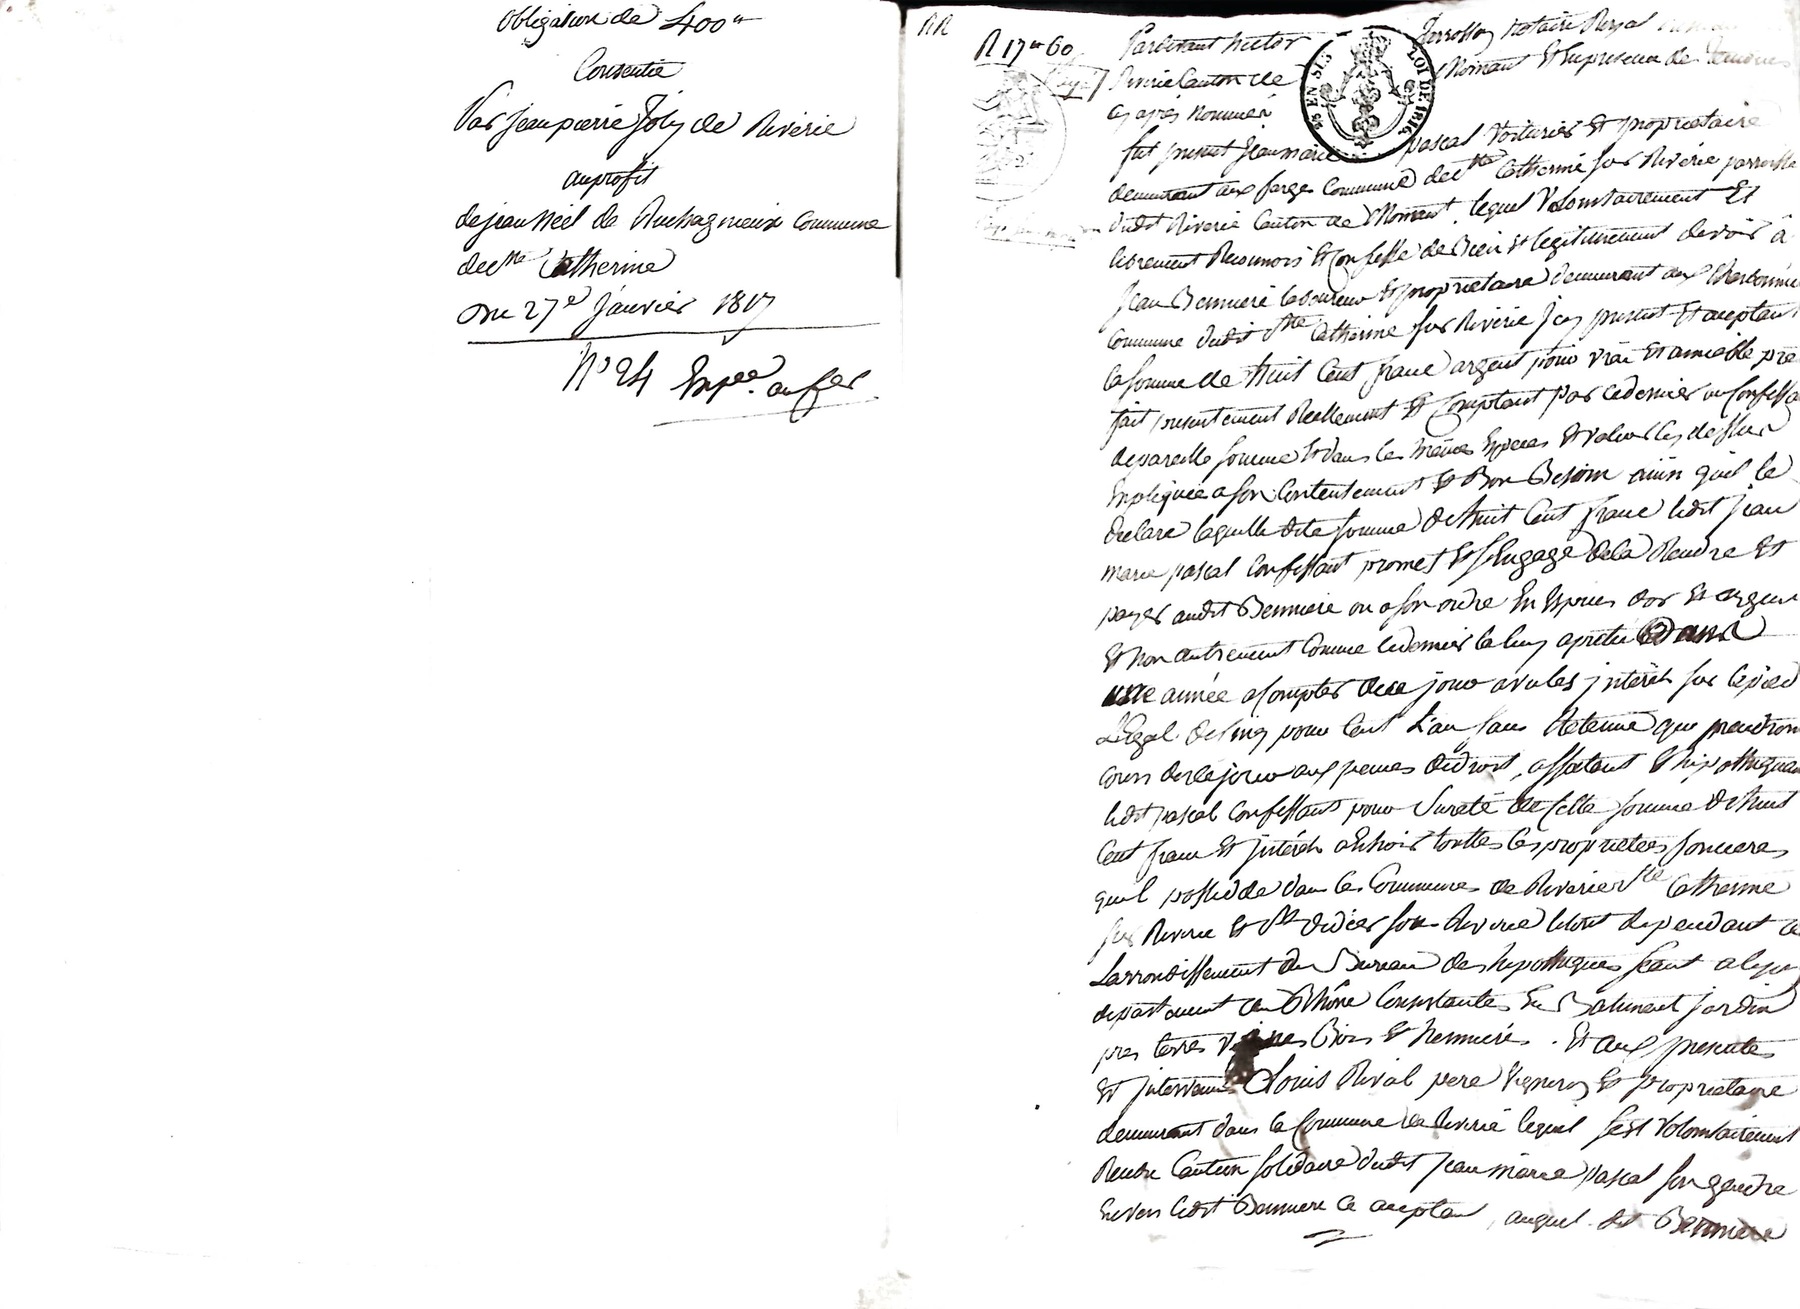 Obligation de 400 tt
Consentie
Par jean pierre Joly de Riverie
au profit
de jean Néel de Ruchagnieux Commune
de Ste Catherine
Du 27e janvier 1817
No 24 Exp.ée au fer
RR
R 17 tt 60
Pardevant hector Terrosson notaire Royal
Riverie Canton de Mornant Et En presence des temoins
cy après nommés
fut present jean marie pascal Voiturier Et propriétaire
demeurant aux forges Commune de Ste Catherine sur Riverie parroisse
dudit Riverie Canton de Mornant, lequel Volontairement Et
librement Reconnois Et Confesse de Bien Et legitimement devoir à
jean Benniere laboureur Et propriétaire demeurant aux
Commune dudit Ste Catherine sur Riverie Jcy present Et aceptant
la somme de huit Cent franc argent pour vrai Et amiable pret
fait presentement Reellement Et Comptant par cedernier au Confessant
de pareille somme Et dans les mêmes Especes Et valeur cy dessus
Expliquée a son Contentement Et Bon Besoin ainsi quil le
declare laquelle dite somme de huit Cent franc ledit jean
marie pascal Confessant promet Et s'Engage dela Rendre Et
payer audit Benniere ou a son ordre En Especes dor Et argent
Et non autrement Comme cedernier la luy apreté dans
une année a Compter dece jour avec les jnterets sur le pied
Légal de Cinq pour Cent L'an sans Retenue que prendront
cours dece jour aux peines de droit, affectant Et hipothequant
ledit pascal Confessant pour Sureté de Cette somme de huit
Cent franc Et jnterets a Echoir touttes les proprietées foncieres
quil possedde dans les Communes de Riverie Ste Catherine
sur Riverie Et St Didier sous Riverie letout dependant de
Larrondissement du Bureau des hipotheques seant a lyon
departement du Rhône Consistantes En Batiment jardin
pres terres vignes Bois Et hermieres. Et aux presentes
Est jntervenu Louis Rival pere Vigneron Et proprietaire
demeurant dans la Commune de Riverie lequel s'est Volontairement
Rendu Caution solidaire dudit jean marie pascal son gendre
Envers ledit Benniere ce aceptant, auquel dit Benniere
25 EN SUS LOI DE 1816